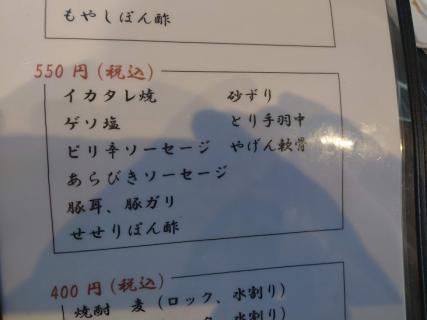 もやしぽん酢
550円(税込)
イカタレ焼　砂ずり
ゲソ塩　とり手羽中
ピリ辛ソーセージ　やげん軟骨
あらびきソーセージ
豚耳、豚ガリ
せせりぽん酢
400円(税込)
焼酎　麦(ロック、水割り)
ク、水割り)